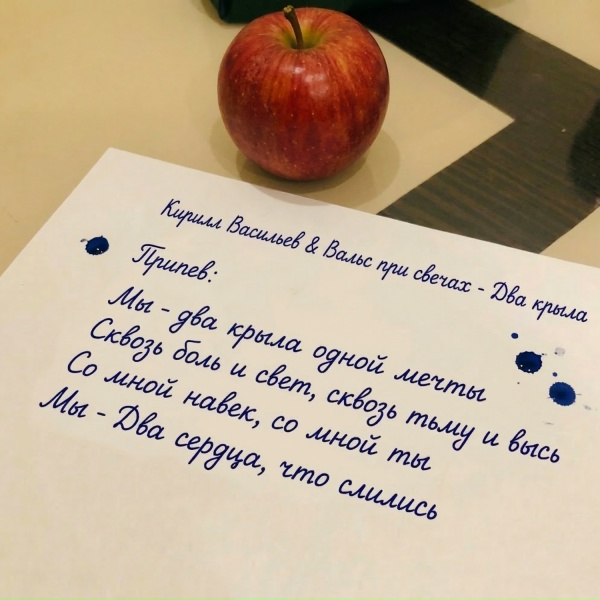 Кирилл Васильев & Вальс при свечах - Два крыла
Припев:
Мы - два крыла одной мечты
Сквозь боль и свет, сквозь тьму и высь
Со мной навек, со мной ты
Мы - Два сердца, что слились